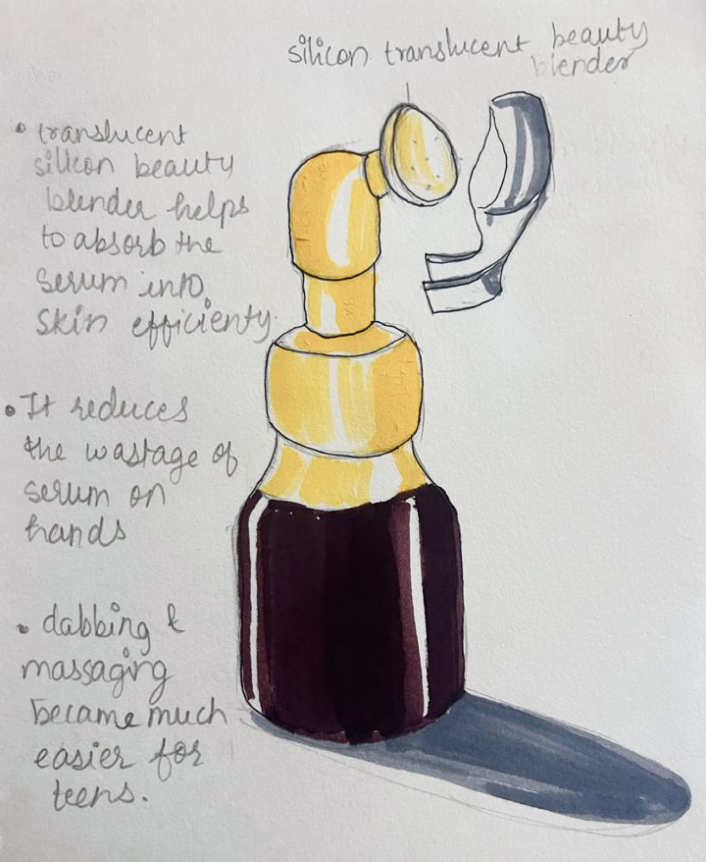 silicon translucent beauty
blender
• translucent
silicon beauty
blender helps
to absorb the
serum into
skin efficienty.
• It reduces
the wastage of
serum on
hands
• dabbing &
massaging
became much
easier for
teens.